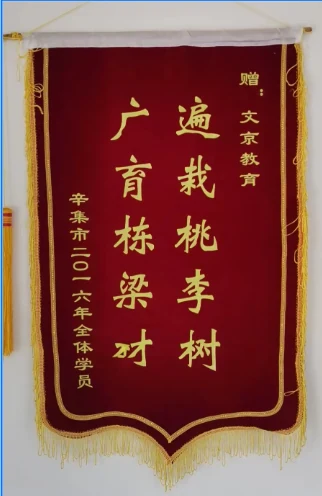 赠：文京教育
遍栽桃李树
广育栋梁材
辛集市二〇一六年全体学员